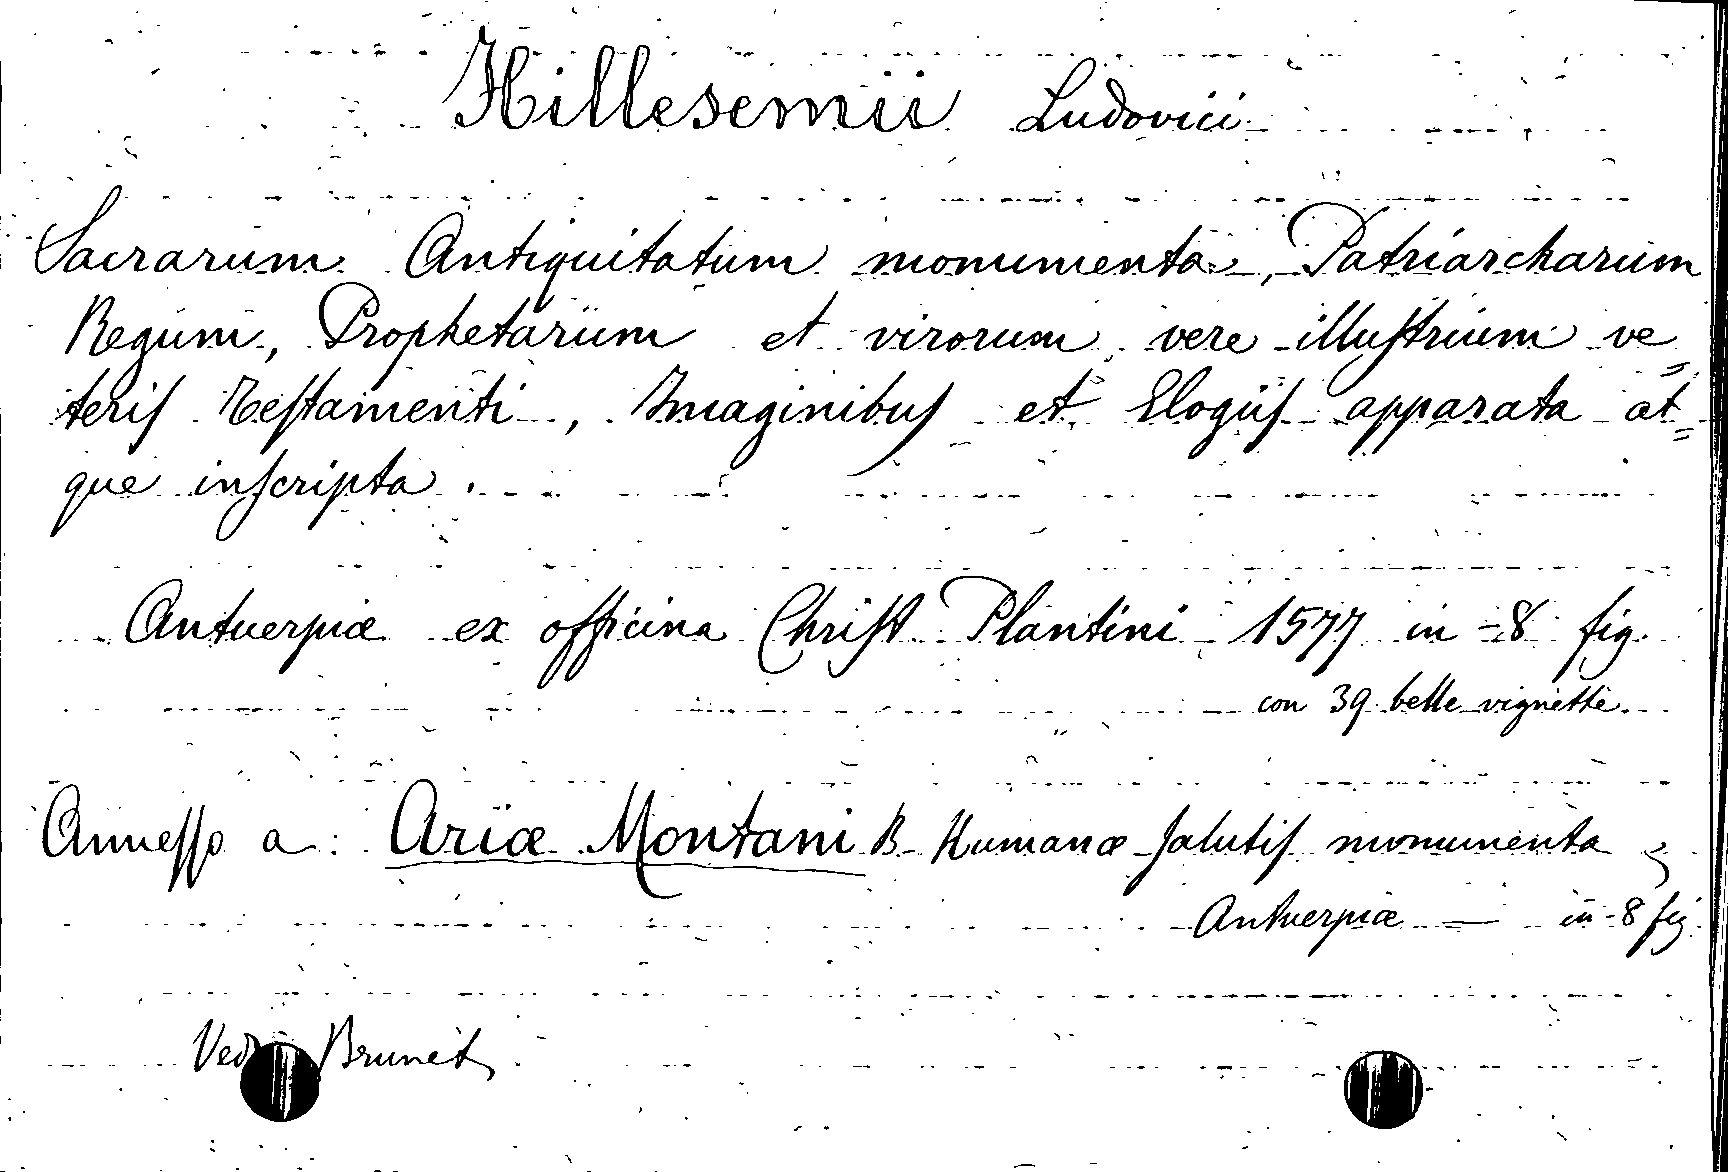 Hillesemii Ludovici
Sacrarum Antiquitatum monumenta, Patriarcharum
Regum, Prophetarum et virorum vere illustrium ve=
teris Testamenti, Imaginibus et Elogiis apparata at=
que inscripta.
Antuerpiæ ex officina Christ Plantini 1577 in-8 fig.
con 39 belle vignette.
Annesso a: Ariæ Montani B. Humanæ salutis monumenta
Antuerpiæ — in-8 fig.
Vedi Brunet